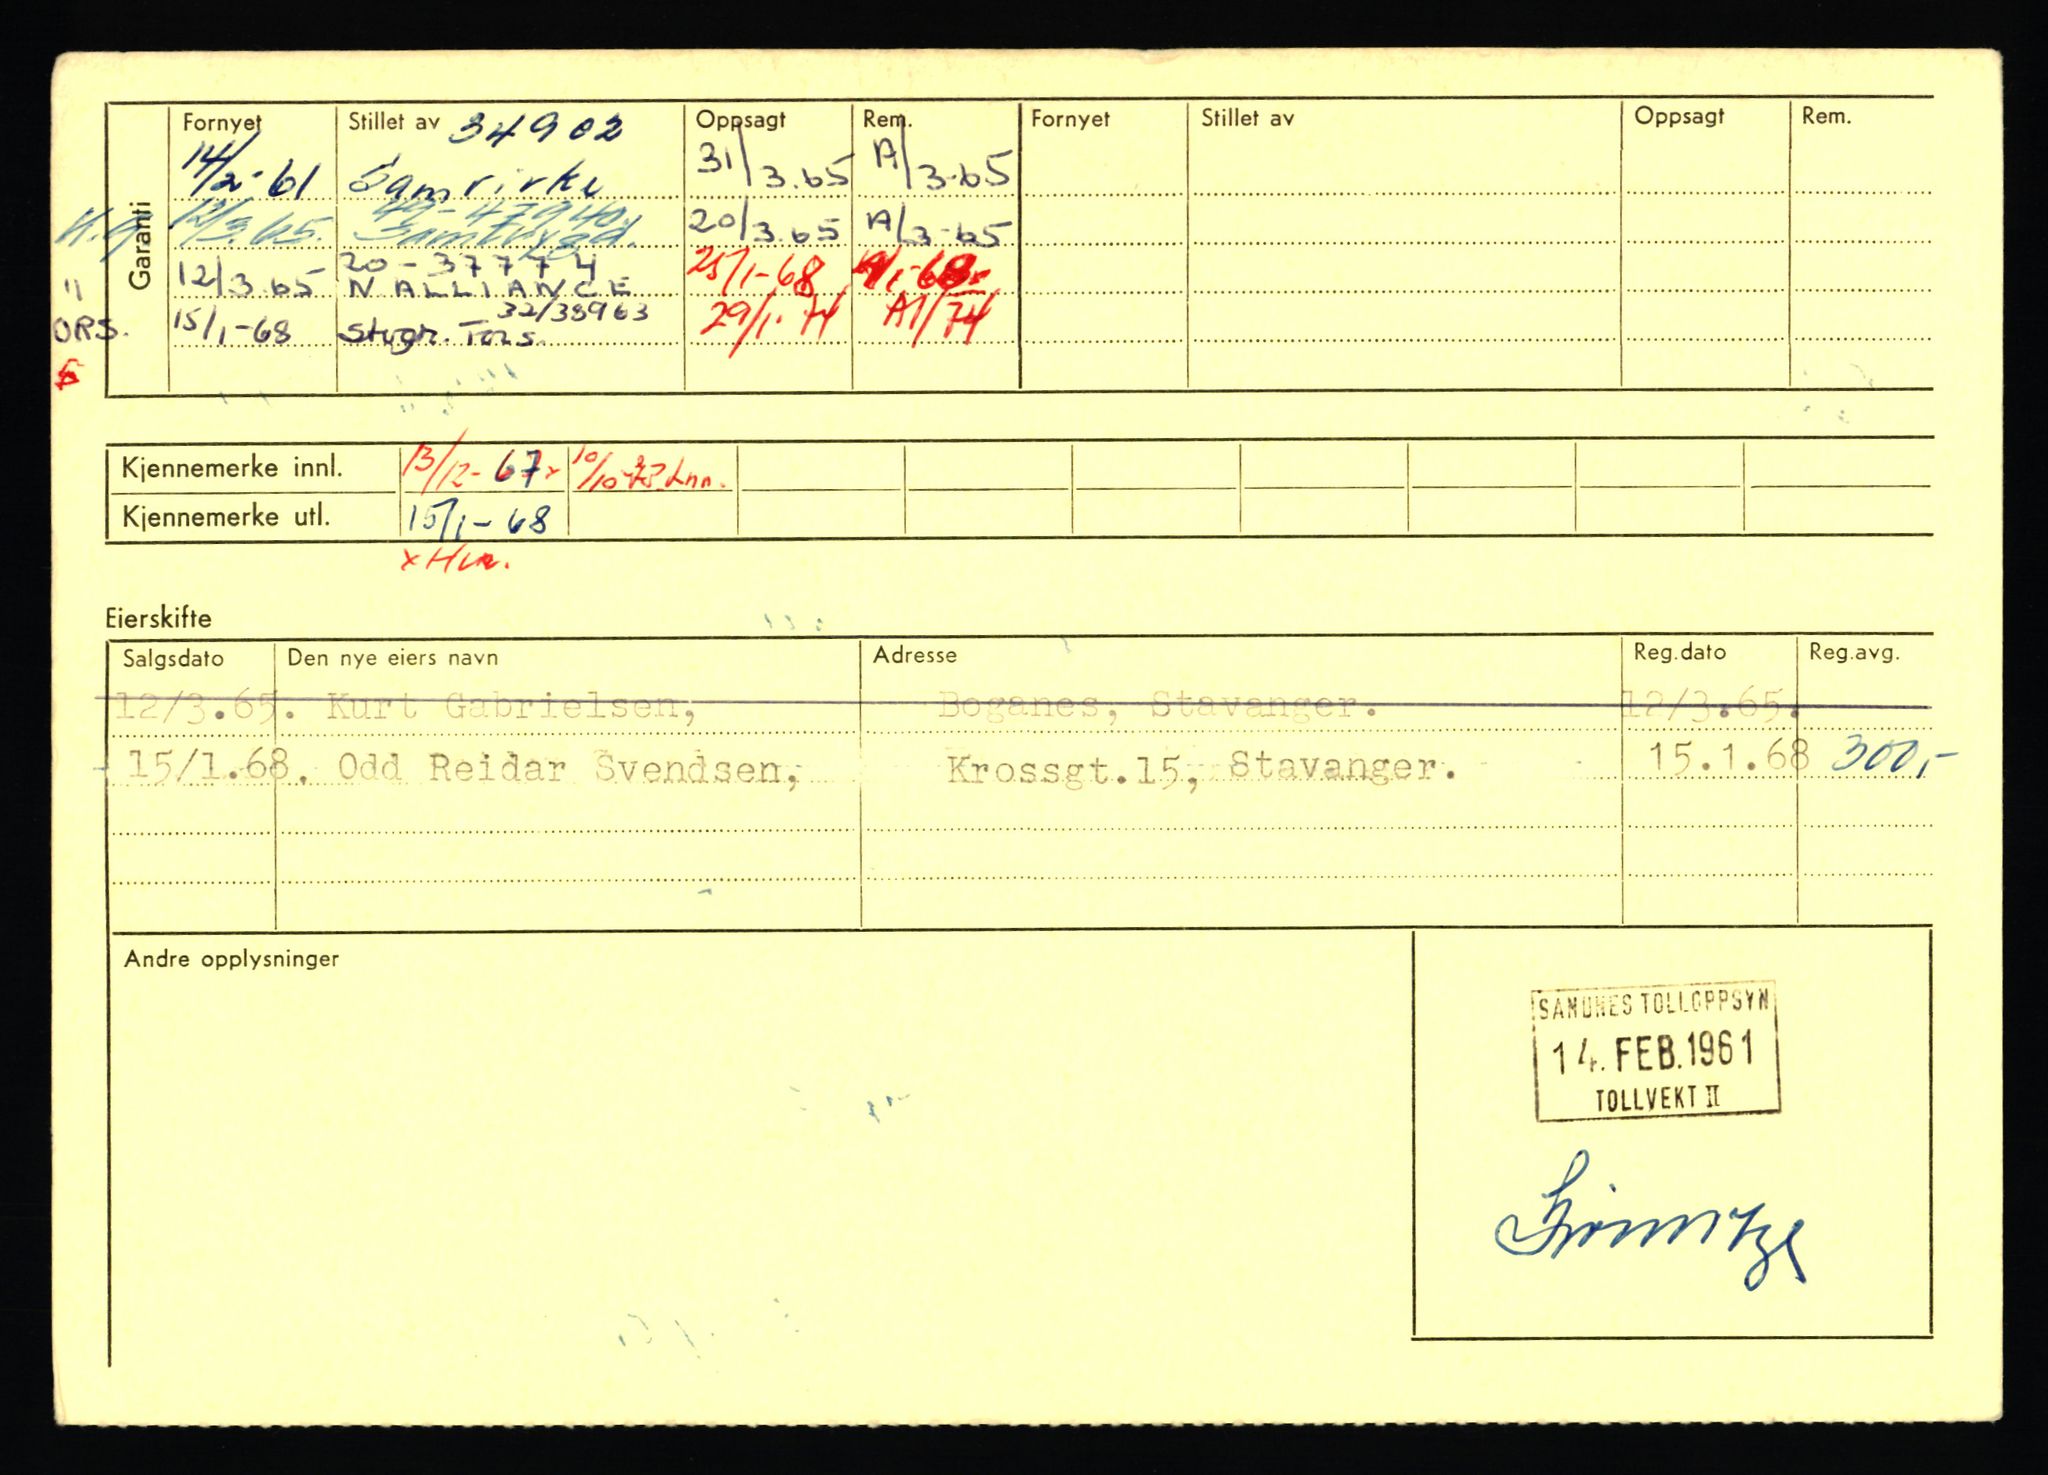 Garanti
Fornyet Stillet av 34902 Oppsagt Rem. Fornyet Stillet av Oppsagt Rem.
14/2-61 Samvirke 31/3.65 A/3-65
K.G 12/3.65. Samtrygd. 20/3.65 A/3-65
" 12/3 65 20-37774 25/1-68
N ALLIANCE
ORS. 15/1-68 32/38963 29/1.74 A1/74
Stvgr. Tors.
Kjennemerke innl. 13/12-67x
Kjennemerke utl. 15/1-68
Eierskifte
Salgsdato Den nye eiers navn Adresse Reg.dato Reg.avg.
12/3.65. Kurt Gabrielsen, Boganes, Stavanger. 12/3.65.
15/1.68. Odd Reidar Svendsen, Krossgt.15, Stavanger. 15.1.68 300,-
Andre opplysninger
SANDNES TOLLOPPSYN
14. FEB. 1961
TOLLVEKT II